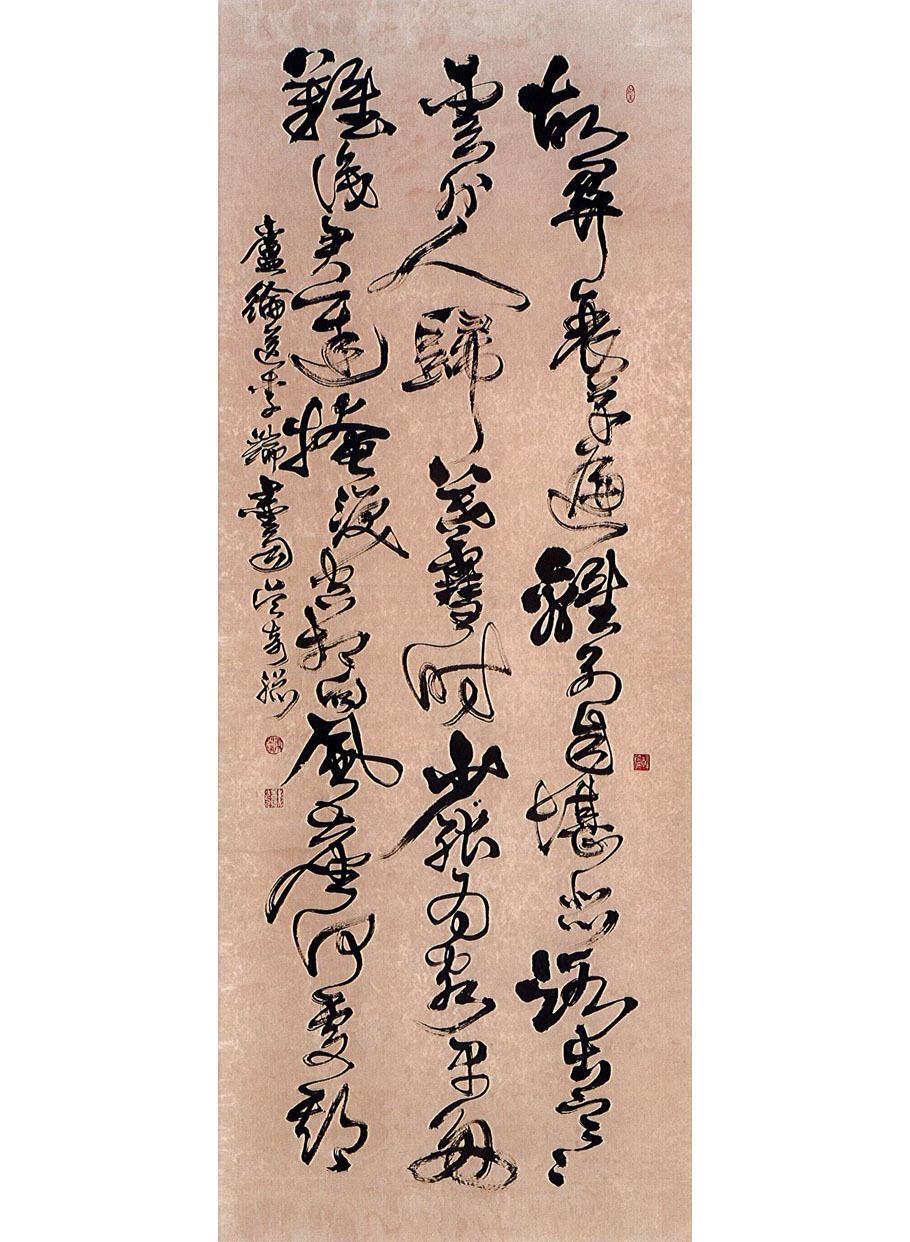 故關衰草遍離別自堪悲路出寒
雲外人歸暮雪時少孤為客早多
難識君遲掩淚空相向風塵何處期
盧綸送李端